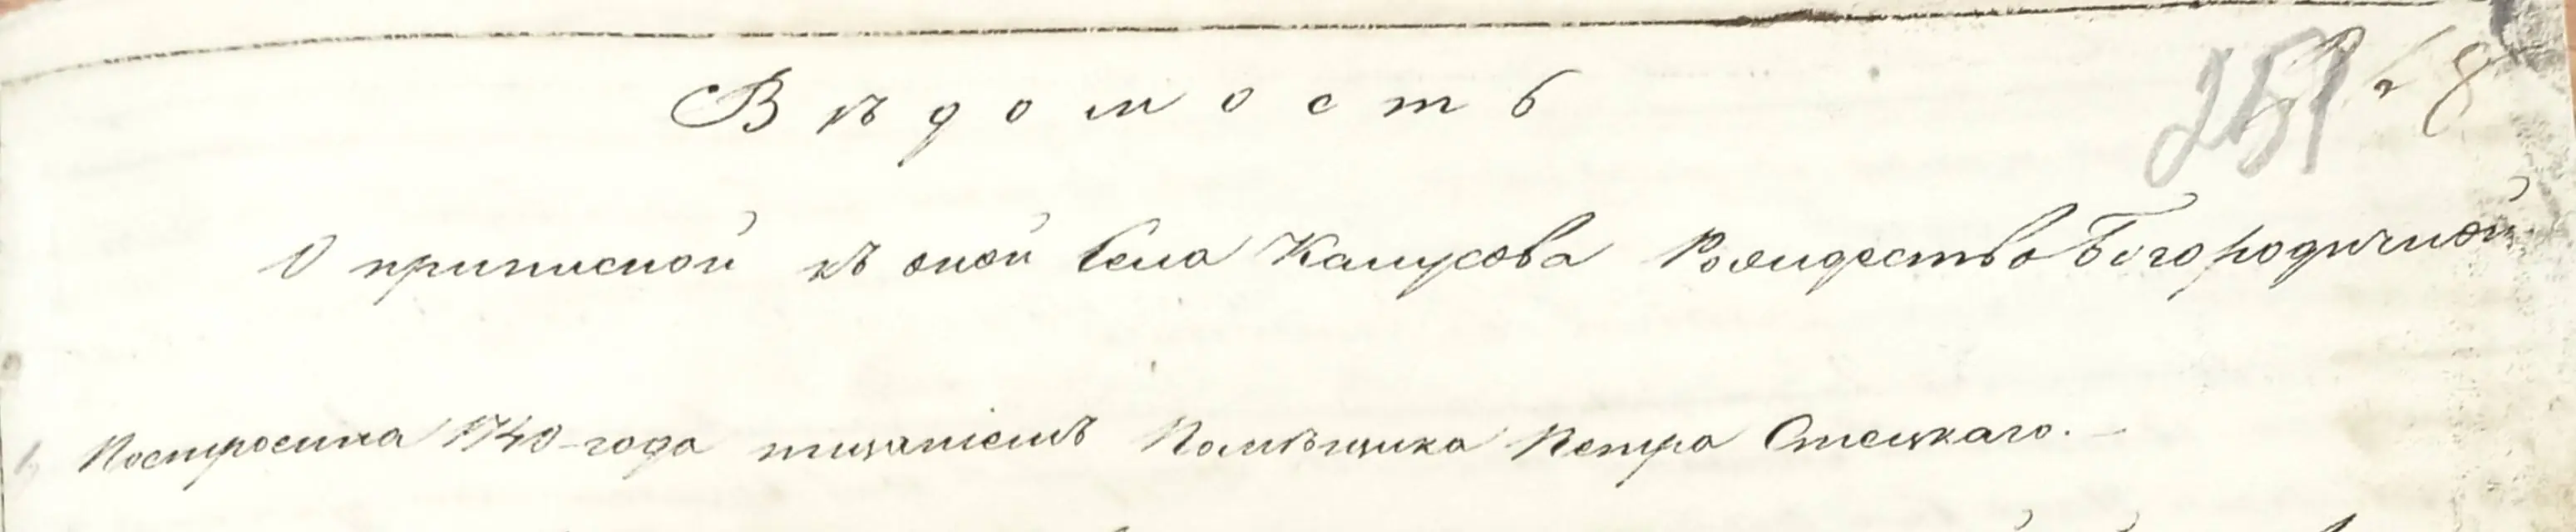 Вѣдомость
О приписной къ оной Села Калусова Рождество Богородичной
1, Построена 1740-года тщаніемъ Помѣщика Петра Стецкаго. —